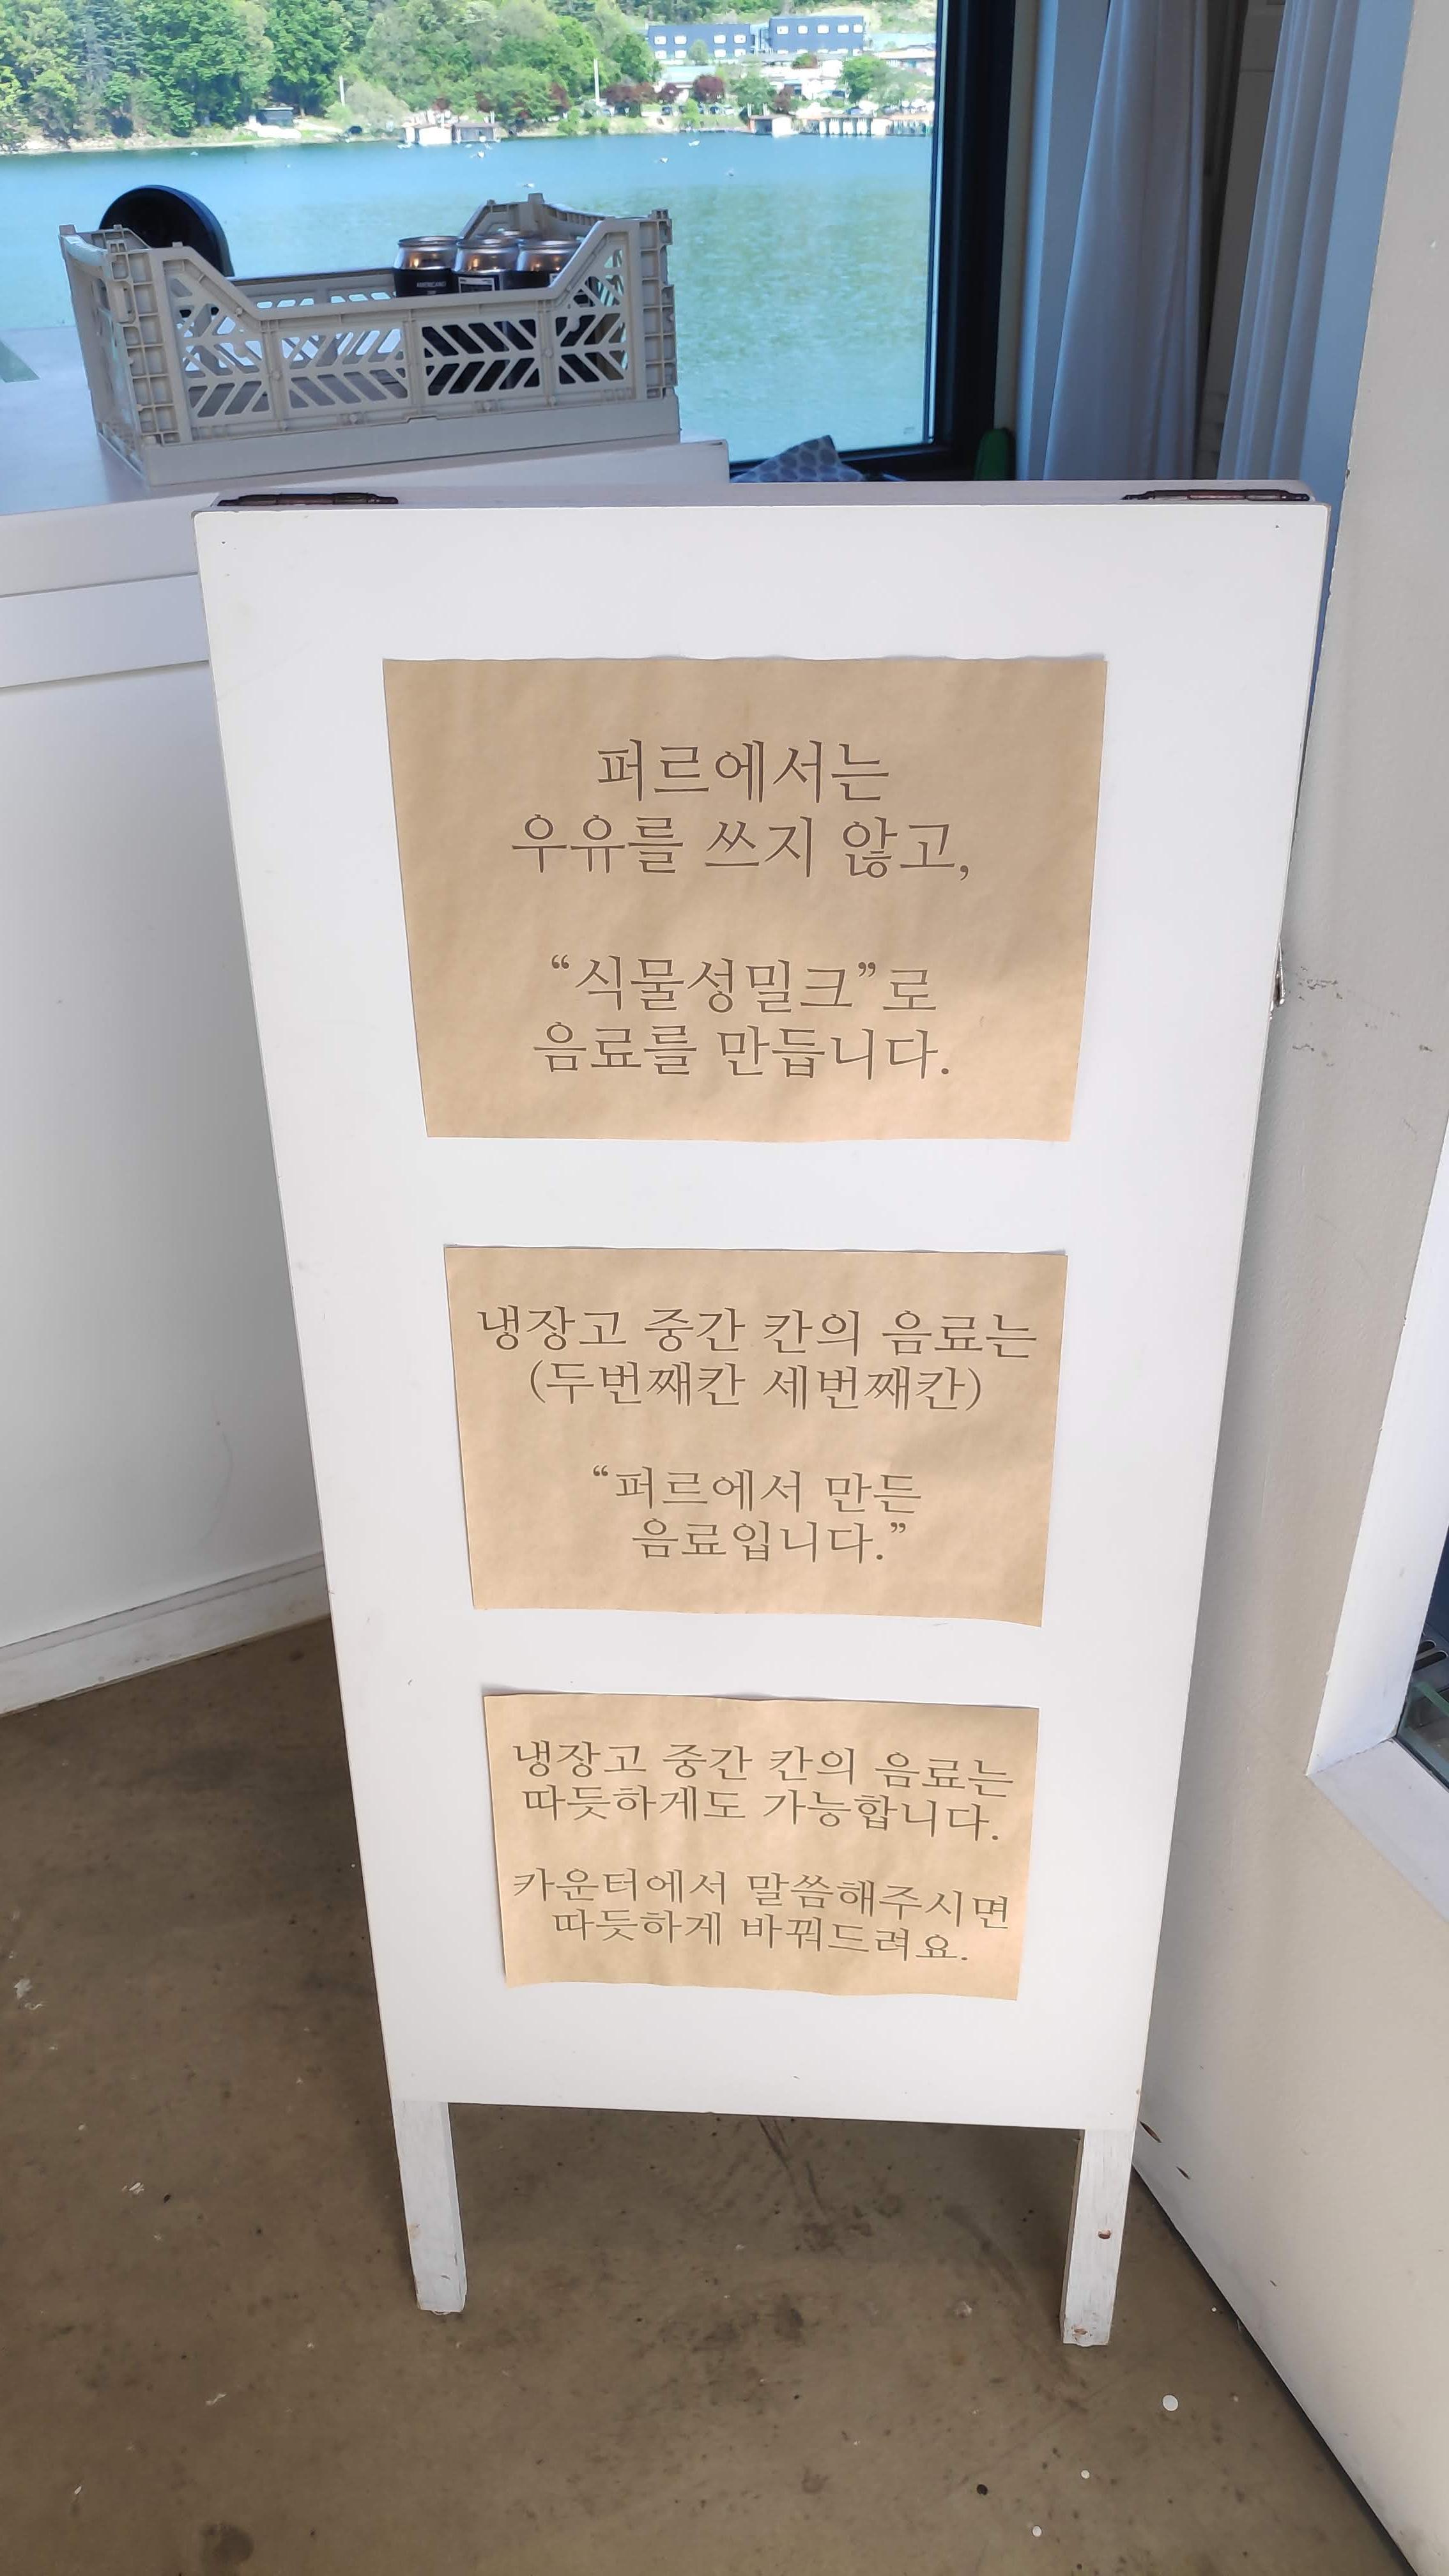 퍼르에서는
우유를 쓰지 않고,
“식물성밀크”로
음료를 만듭니다.
냉장고 중간 칸의 음료는
(두번째칸 세번째칸)
“퍼르에서 만든
음료입니다.”
냉장고 중간 칸의 음료는
따듯하게도 가능합니다.
카운터에서 말씀해주시면
따듯하게 바꿔드려요.